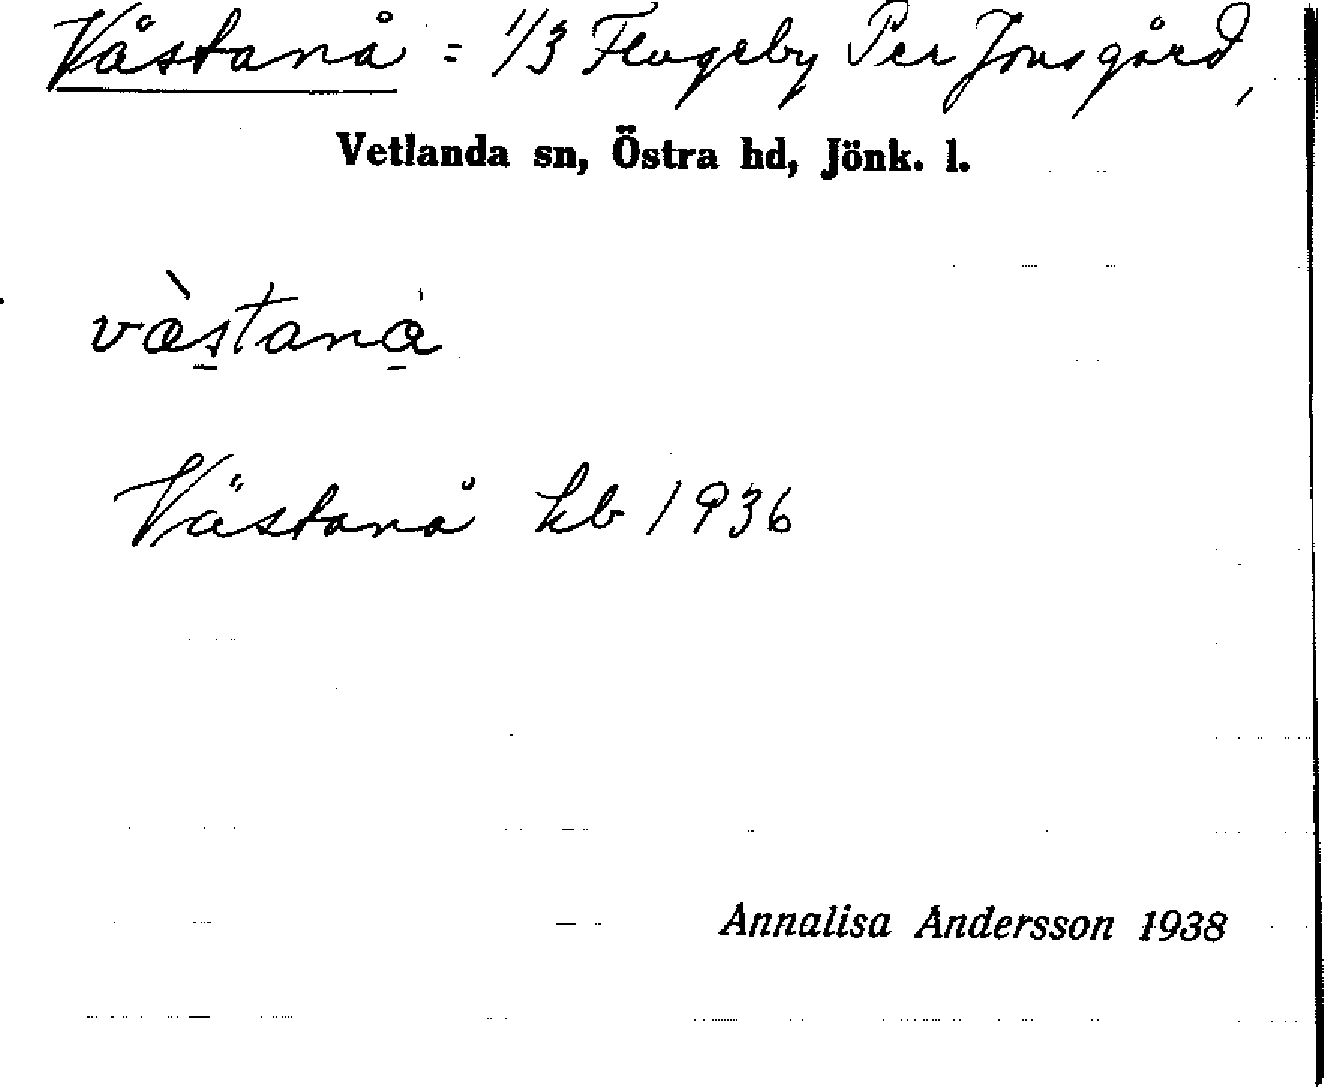 Västanå = 1/3 Flugeby Per Jonsgård,
Vetlanda sn, Östra hd, Jönk. l.
västanå
Västanå kb 1936
Annalisa Andersson 1938